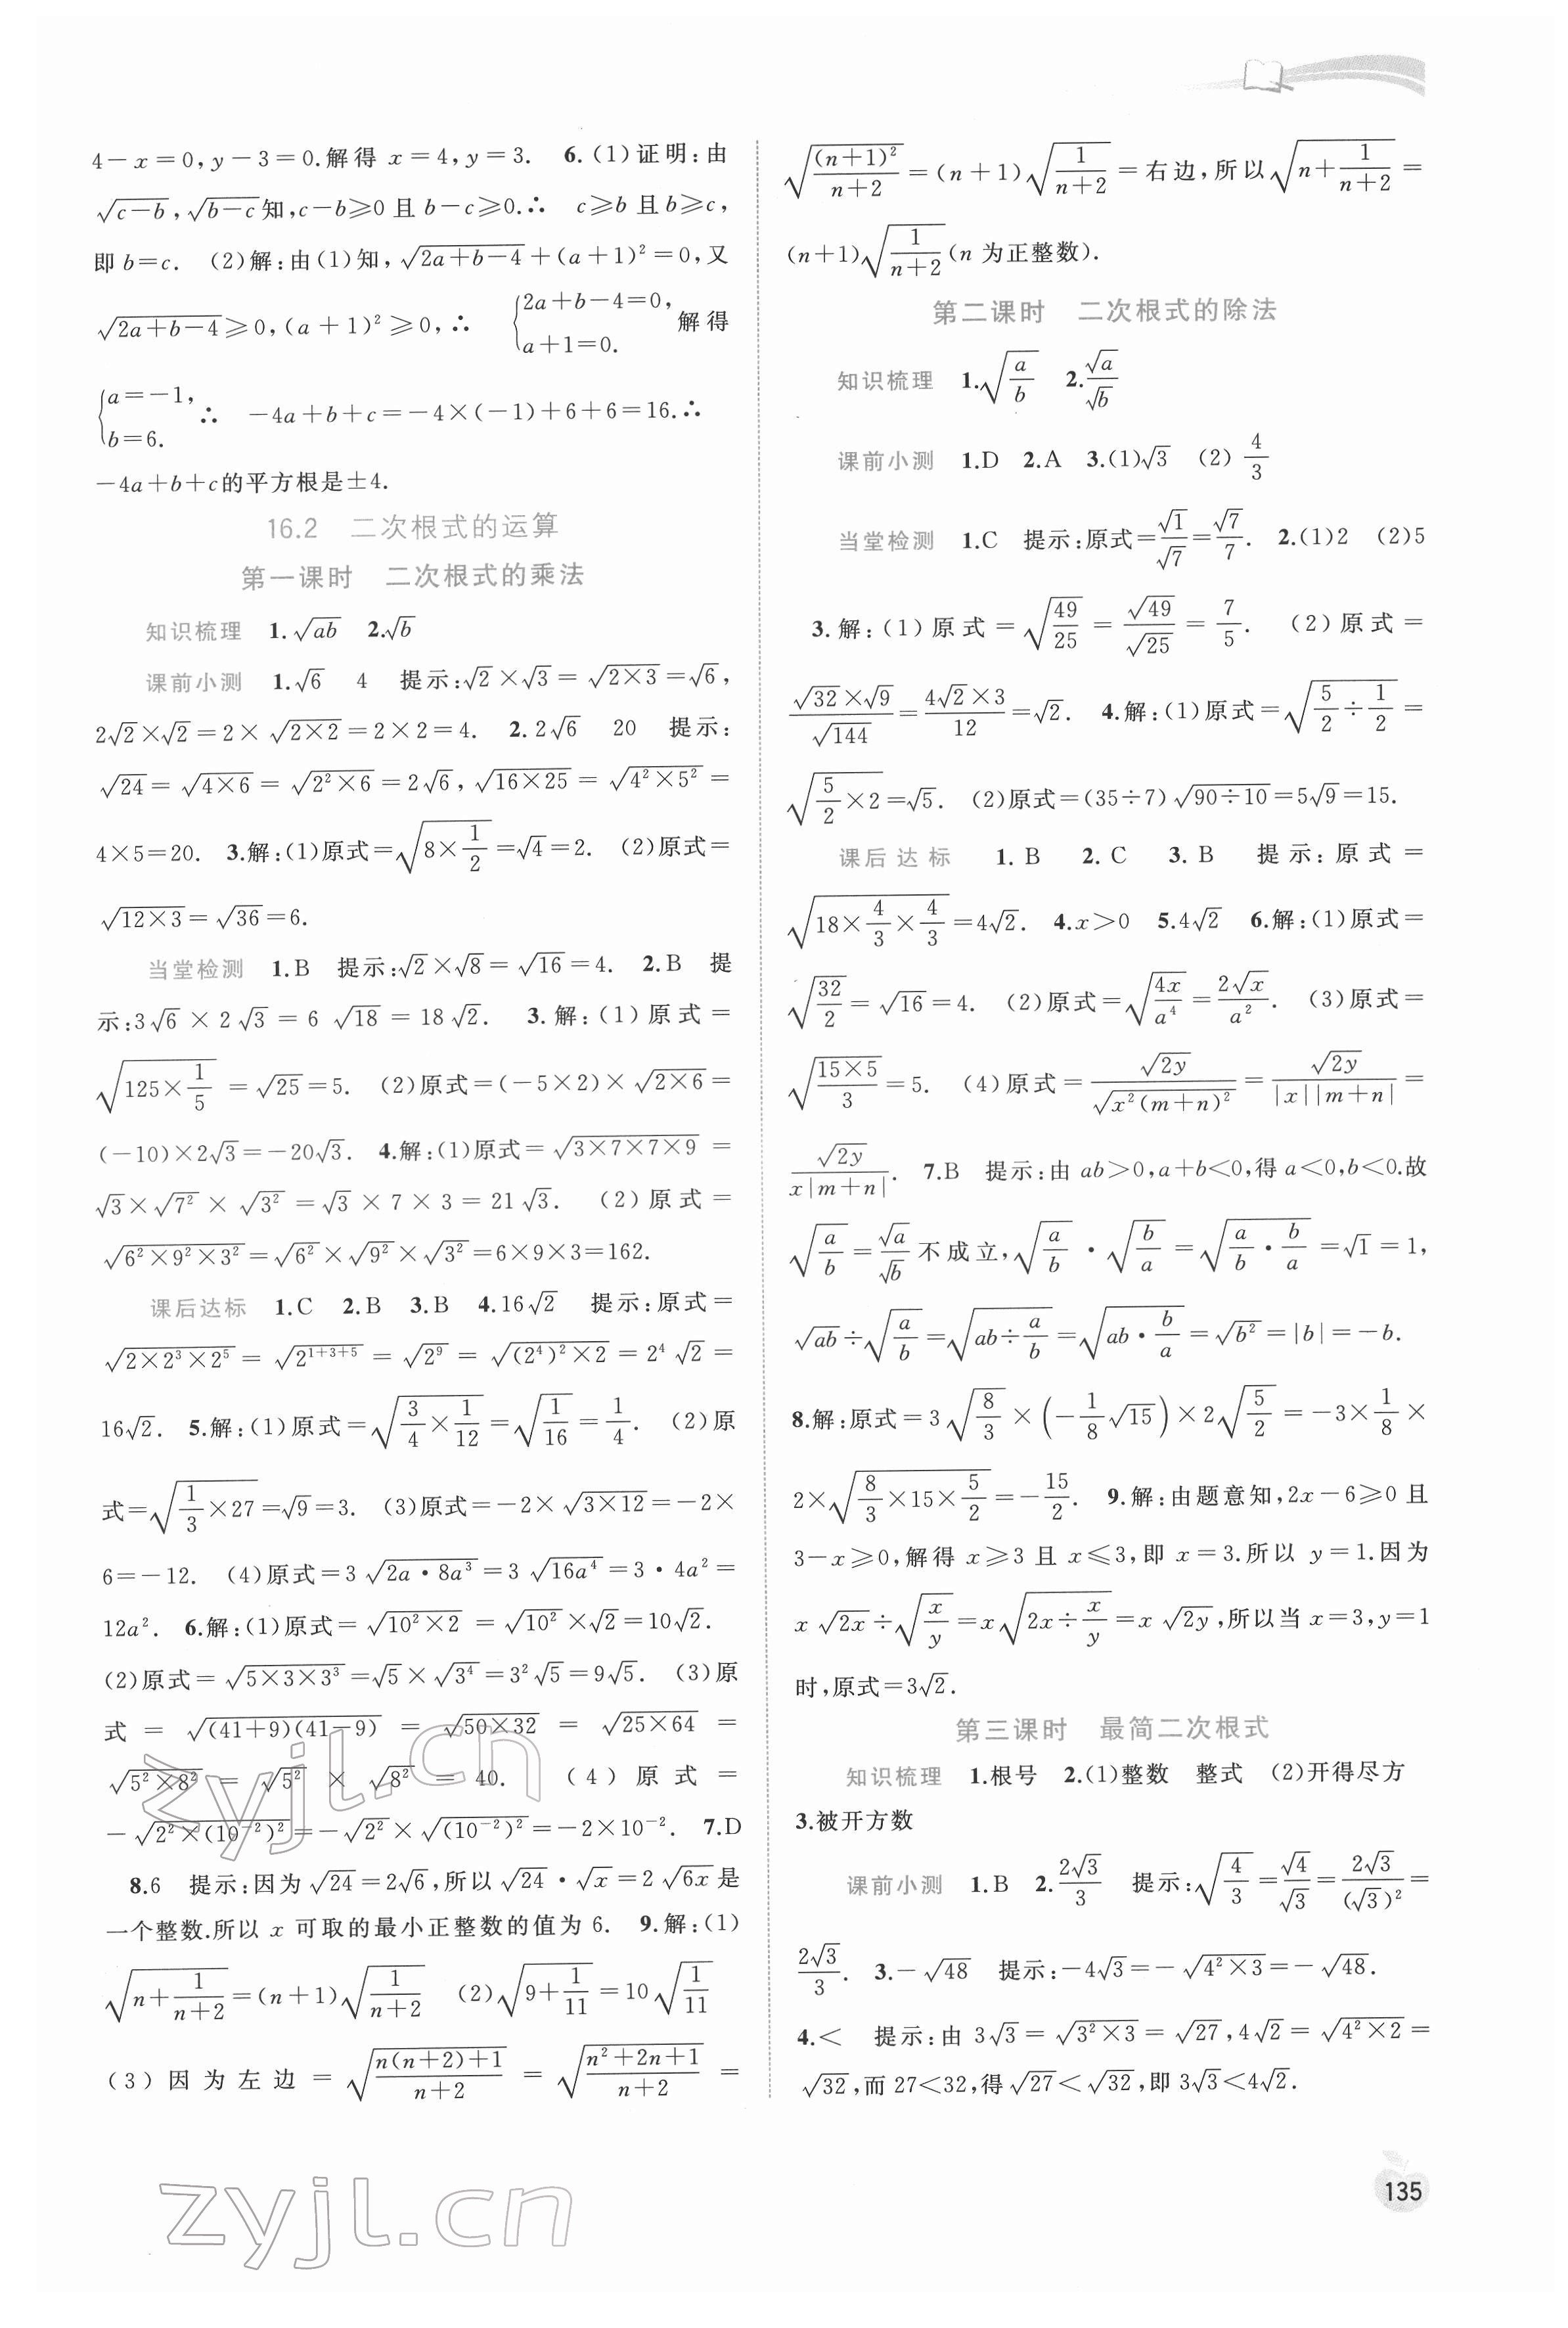 4－x＝0,y－3＝0.解得 x＝4,y＝3.　6.(1)证明:由
√(c－b),√(b－c)知,c－b≥0 且 b－c≥0.∴　c≥b 且 b≥c,
即 b＝c.　(2)解:由(1)知,√(2a＋b－4)＋(a＋1)²＝0,又
√(2a＋b－4)≥0,(a＋1)²≥0,∴　{2a＋b－4＝0, a＋1＝0. 解得
{a＝－1, b＝6. ∴　－4a＋b＋c＝－4×(－1)＋6＋6＝16.∴
－4a＋b＋c的平方根是±4.
16.2　二次根式的运算
第一课时　二次根式的乘法
知识梳理　1.√(ab)　2.√b
课前小测　1.√6　4　提示:√2×√3＝√(2×3)＝√6,
2√2×√2＝2×√(2×2)＝2×2＝4.　2.2√6　20　提示:
√24＝√(4×6)＝√(2²×6)＝2√6,√(16×25)＝√(4²×5²)＝
4×5＝20.　3.解:(1)原式＝√(8×1/2)＝√4＝2.　(2)原式＝
√(12×3)＝√36＝6.
当堂检测　1.B　提示:√2×√8＝√16＝4.　2.B　提
示:3√6×2√3＝6√18＝18√2.　3.解:(1)原式＝
√(125×1/5)＝√25＝5.　(2)原式＝(－5×2)×√(2×6)＝
(－10)×2√3＝－20√3.　4.解:(1)原式＝√(3×7×7×9)＝
√3×√(7²)×√(3²)＝√3×7×3＝21√3.　(2)原式＝
√(6²×9²×3²)＝√(6²)×√(9²)×√(3²)＝6×9×3＝162.
课后达标　1.C　2.B　3.B　4.16√2　提示:原式＝
√(2×2³×2⁵)＝√(2¹⁺³⁺⁵)＝√(2⁹)＝√((2⁴)²×2)＝2⁴√2＝
16√2.　5.解:(1)原式＝√(3/4×1/12)＝√(1/16)＝1/4.　(2)原
式＝√(1/3×27)＝√9＝3.　(3)原式＝－2×√(3×12)＝－2×
6＝－12.　(4)原式＝3√(2a·8a³)＝3√(16a⁴)＝3·4a²＝
12a².　6.解:(1)原式＝√(10²×2)＝√(10²)×√2＝10√2.
(2)原式＝√(5×3×3³)＝√5×√(3⁴)＝3²√5＝9√5.　(3)原
式＝√((41＋9)(41－9))＝√(50×32)＝√(25×64)＝
√(5²×8²)＝√(5²)×√(8²)＝40.　(4)原式＝
－√(2²×(10⁻²)²)＝－√(2²)×√((10⁻²)²)＝－2×10⁻².　7.D
8.6　提示:因为√24＝2√6,所以√24·√x＝2√(6x)是
一个整数.所以 x 可取的最小正整数的值为 6.　9.解:(1)
√(n＋1/(n＋2))＝(n＋1)√(1/(n＋2))　(2)√(9＋1/11)＝10√(1/11)
(3)因为左边＝√((n(n＋2)＋1)/(n＋2))＝√((n²＋2n＋1)/(n＋2))＝
√((n＋1)²/(n＋2))＝(n＋1)√(1/(n＋2))＝右边,所以√(n＋1/(n＋2))＝
(n＋1)√(1/(n＋2))(n 为正整数).
第二课时　二次根式的除法
知识梳理　1.√(a/b)　2.√a/√b
课前小测　1.D　2.A　3.(1)√3　(2)4/3
当堂检测　1.C　提示:原式＝√1/√7＝√7/7.　2.(1)2　(2)5
3.解:(1)原式＝√(49/25)＝√49/√25＝7/5.　(2)原式＝
(√32×√9)/√144＝(4√2×3)/12＝√2.　4.解:(1)原式＝√(5/2÷1/2)＝
√(5/2×2)＝√5.　(2)原式＝(35÷7)√(90÷10)＝5√9＝15.
课后达标　1.B　2.C　3.B　提示:原式＝
√(18×4/3×4/3)＝4√2.　4.x＞0　5.4√2　6.解:(1)原式＝
√(32/2)＝√16＝4.　(2)原式＝√(4x/a⁴)＝2√x/a².　(3)原式＝
√(15×5/3)＝5.　(4)原式＝√(2y)/√(x²(m＋n)²)＝√(2y)/(|x||m＋n|)＝
√(2y)/(x|m＋n|).　7.B　提示:由 ab＞0,a＋b＜0,得 a＜0,b＜0.故
√(a/b)＝√a/√b不成立,√(a/b)·√(b/a)＝√(a/b·b/a)＝√1＝1,
√(ab)÷√(a/b)＝√(ab÷a/b)＝√(ab·b/a)＝√(b²)＝|b|＝－b.
8.解:原式＝3√(8/3)×(－1/8√15)×2√(5/2)＝－3×1/8×
2×√(8/3×15×5/2)＝－15/2.　9.解:由题意知,2x－6≥0 且
3－x≥0,解得 x≥3 且 x≤3,即 x＝3.所以 y＝1.因为
x√(2x)÷√(x/y)＝x√(2x÷x/y)＝x√(2y),所以当 x＝3,y＝1
时,原式＝3√2.
第三课时　最简二次根式
知识梳理　1.根号　2.(1)整数　整式　(2)开得尽方
3.被开方数
课前小测　1.B　2.2√3/3　提示:√(4/3)＝√4/√3＝2√3/(√3)²＝
2√3/3.　3.－√48　提示:－4√3＝－√(4²×3)＝－√48.
4.＜　提示:由 3√3＝√(3²×3)＝√27,4√2＝√(4²×2)＝
√32,而 27＜32,得√27＜√32,即 3√3＜4√2.
135
zyjl.cn
zyjl.cn